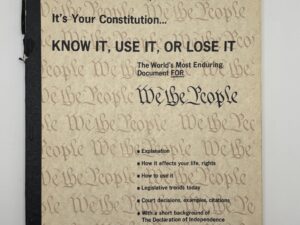 It's Your Constitution...
KNOW IT, USE IT, OR LOSE IT
The World's Most Enduring
Document FOR
We the People
We the People
We the People
We the People
We the People
We the People
■ Explanation
■ How it affects your life, rights
■ How to use it
■ Legislative trends today
■ Court decisions, examples, citations
■ With a short background of
The Declaration of Independence